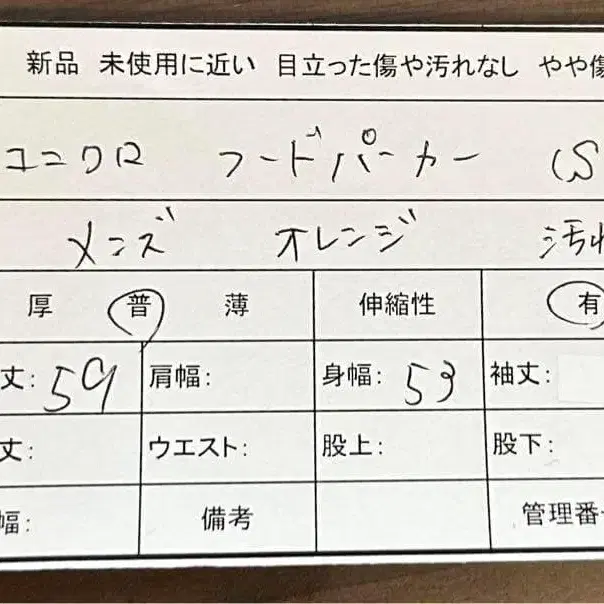 新品 未使用に近い 目立った傷や汚れなし やや傷
ユニクロ フードパーカー (S
メンズ オレンジ 汚れ
厚 普 薄 伸縮性 有
丈: 59 肩幅: 身幅: 53 袖丈:
丈: ウエスト: 股上: 股下:
幅: 備考 管理番号